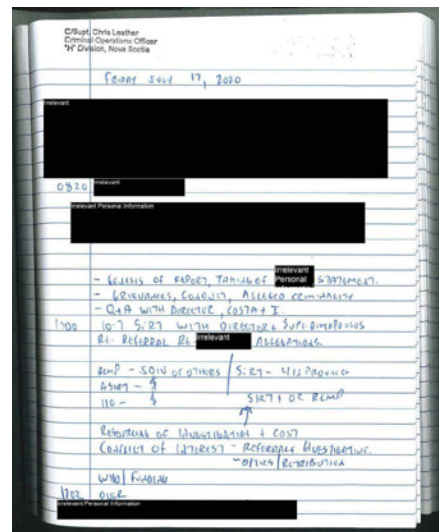 C/Supt. Chris Leather
Criminal Operations Officer
"H" Division, Nova Scotia
FRIDAY JULY 17, 2020
Irrelevant
0820 Irrelevant
Irrelevant Personal Information
- GENESIS OF REPORT, TAKING OF Irrelevant Personal STATEMENT.
- GRIEVANCES, CONDUCT, ALLEGED CRIMINALITY
- Q+A WITH DIRECTOR, COSTA + I.
1700 10-7 SIRT WITH DIRECTOR + SUPT DIMOPOULOS
RE: REFERRAL RE Irrelevant ALLEGATIONS
RCMP - OF OTHERS / SIRT - PROVINCE
ASIRT - $
IIO - $ SIRT + OR RCMP
RESOURCING OF INVESTIGATION + COST
CONFLICT OF INTEREST - REFERRALS INVESTIGATIVE.
- OPTICS / RETRIBUTION
WHO / FUNDING
OVER
Irrelevant Personal Information